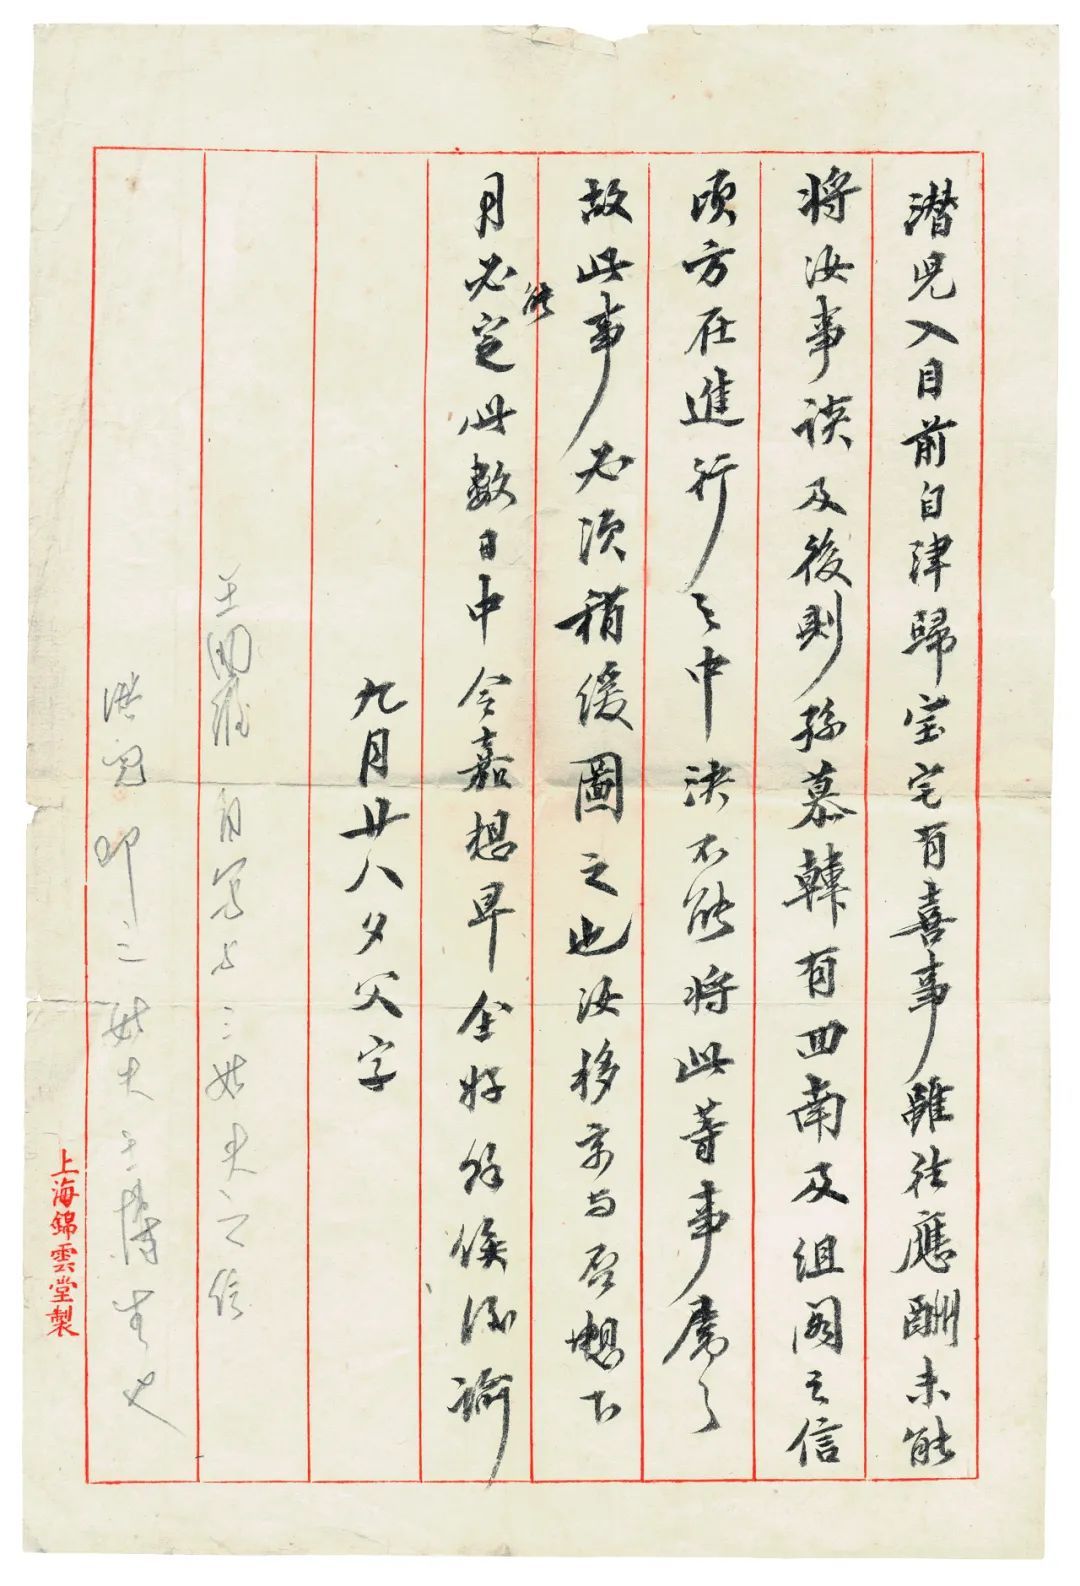 潜兒入目前自津歸宝宅有喜事雖往應酬未能
將汝事談及後則孫慕韓有西南及組閣之信
頃方在進行之中決不能將此等事屬之
故此事必須稍緩圖之也汝移京与否想下
月必能定此數日中令嘉想早全好餘俟後諭
九月廿八夕父字
王国維自写与三姑夫之信
潜兒即三姑夫
上海錦雲堂製